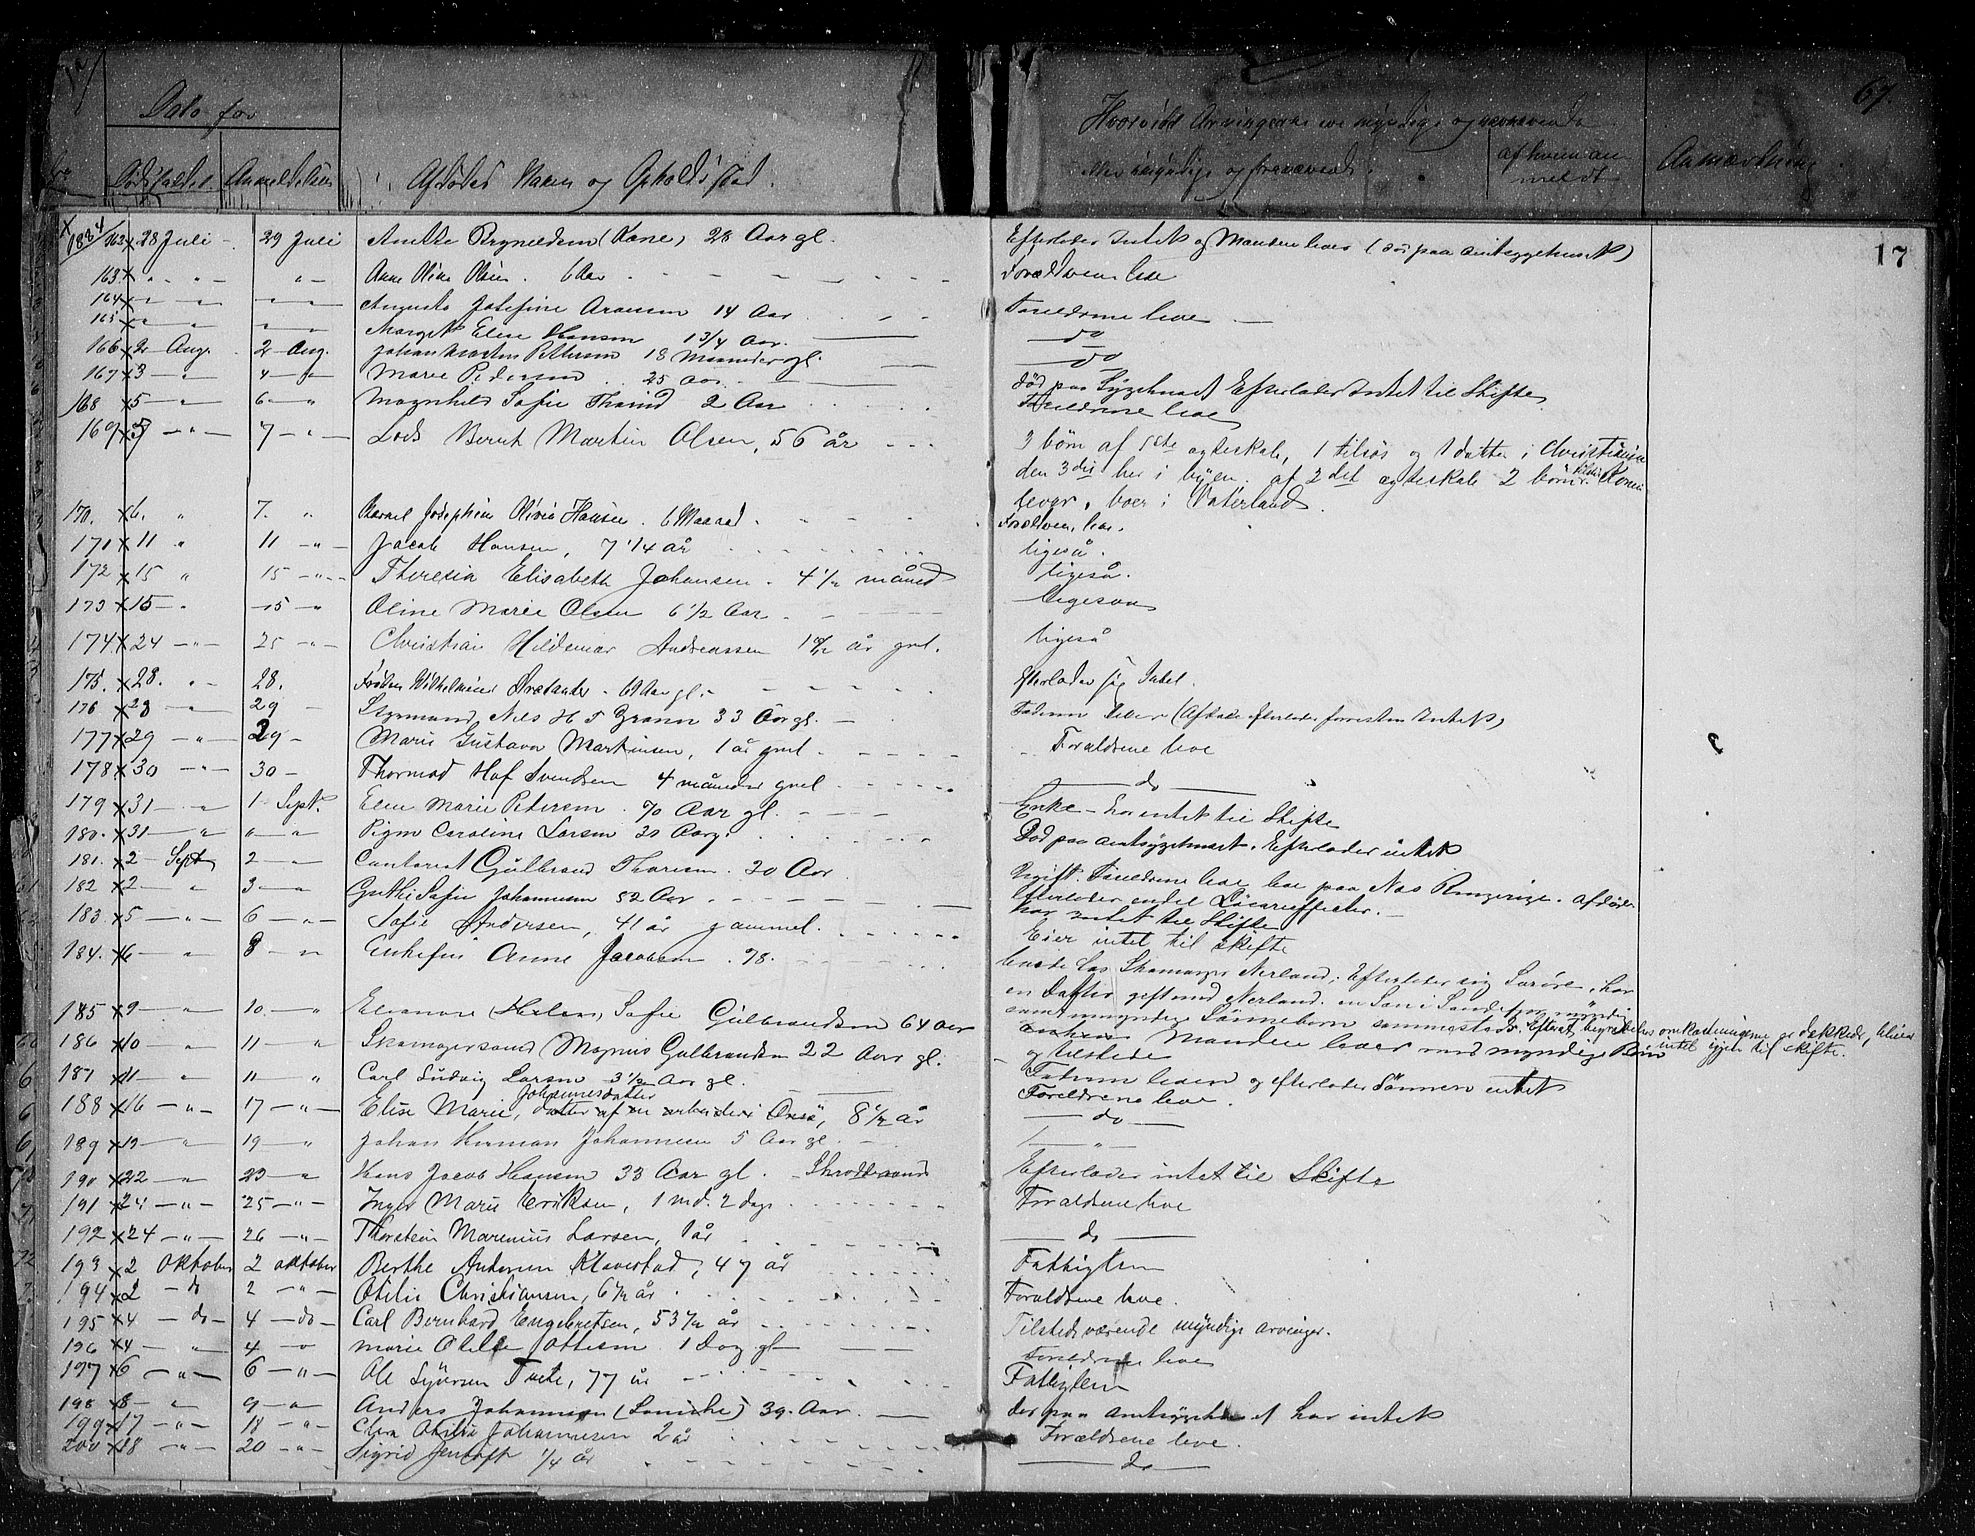 Dato for
Dødsfaldet Anmeldelsen Afdødes Navn og Opholdssted.
Hvorvidt Arvingerne ere myndige og nærværende
eller umyndige og fraværende. af hvem anmeldt Anmærkning
67.
17
1884 162 x 28 Juli - 29 Juli Anetta Brynildsen (Kone) 28 Aar gl. Efterlader Intet og Manden lever (død paa Amtsygehuset)
163 x " " " Anne Oline Olsen. 6 Aar Forældrene leve
164 x " " " Augusta Josefine Aronsen 14 Aar Forældrene leve
165 x " " " Margit Elise Hansen 1 3/4 Aar. do
166 x 2 Aug. 2 Aug. Johan Martin Pettersen 18 Maaneder gl. do
167 x 3 " 4 " Marie Pedersen 25 Aar. død paa Sygehuset Efterlader Intet til Skifte
168 x 5 " 6 " Magnhild Sofie 2 Aar Forældrene leve
169 x 5 " 7 " Lods Bernt Martin Olsen, 56 år 3 börn af 1ste egteskab, 1 tilsøs og 1 datter i Christiania
den 3die her i byen. af 2det egteskab 2 börn. Konen
lever, boer i Vaterland.
170. x 6. " 7. " Josephine Olivia Hansen. 6 Maaned. Forældrene leve.
171 x 11 " 11 " Jacob Hansen, 7 1/4 år ligeså.
172 x 15 " 15 " Theresia Elisabeth Johansen. 4 1/2 måned ligeså.
173 x 15 " 15 " Oline Marie Olsen 6 1/2 Aar ligesaa
174 x 24 " 25 " Christian Hildemar Andreassen år gml. ligeså
175. x 28. " 28. Frøken Wilhelmine Aar gl. Efterlader sig Intet.
176 x 28 " 29 Styrmand Nils H T Brann 33 Aar gl. Faderen lever (Afdøde efterlader forresten Intet)
177 x 29 " 29 Marie Gustava Martinsen, 1 år gml. Forældrene leve
178 x 30 " 30 Thormod Hof Svendsen 4 måneder gml do
179 x 31 " 1 Sept. Elen Marie Petersen. 70 Aar gl. Enke - har intet til Skifte
180. x 31 " " " Pigen Caroline Larsen 20 Aar g. Død paa Amtsygehuset. Efterlader intet
181. x 2 Sept 2 " Gulbrand Thoresen. 30 Aar Ugift. Forældrene leve boe paa Næs Ringerige. Afdøde
efterlader endel Løsøreeffecter.
182 x 2 " 3 " Sofie Johannesen 52 Aar har intet til Skifte
183. x 5 " 6 " Sofie Andersen, 41 år gammel. Eier intet til skifte
184. x 6 " 8 " Enkefru Anne Jacobsen. 78. boede hos Skomager Nerland, Efterlader sig Løsøre, har
en Datter gift med Nerland. en Søn i Sandefjord myndig
samt myndige Sønnebørn sammesteds. begravelses omkostningerne er dekkede, blive
intet igjen til skifte.
185 x 9 " 10. " Eleonore (Helene) Sofie Gulbrandsen 64 Aar Manden lever med myndige Børn
og tilstede
186 x 10 " 11 " Skomagersvend Magnus Gulbrandsen 22 Aar gl. Faderen lever og efterlader Sønnen intet
187 x 11 " 11 " Carl Ludvig Larsen 3 1/2 Aar gl. Forældrene leve.
188 x 16 " 17 " Elise Marie, Johannesdatter datter af en arbeider i Onsö, 8 1/2 år do
189 x 19 " 19 " Johan Herman Johannesen 5 Aar gl. "
190 x 22 " 23 " Hans Jacob Hansen 33 Aar gl. Efterlader intet til Skifte
191 x 24 " 25 " Inger Marie Eriksen, 1 md. 2 dage Forældrene leve
192 x 24 " 26 " Thorstein Marenius Larsen, 1 år do
193 x 2 Oktober 2 oktober Berthe Antonsen Klavestad, 47 år Fattiglem
194 x 2 do 2 " Otilie Christiansen, 6 1/2 år Forældrene leve.
195 x 4 do 4 do Carl Bernhard Engebretsen, 53 1/2 år Tilstedeværende myndige arvinger.
196 x 4 " 4 " Marie Otilie Ottesen. 1 Dag gl Forældrene leve
197 x 6 " 6 " Ole Syversen Tvete, 77 år Fattiglem
198 x 8 " 9 " Anders Johannesen 39. Aar. død paa Amtsygehuset har intet
199 x 17 " 18 " Otilie Johannesen 2 år Forældrene leve.
200 x 18 " 20 " Sigrid Jentoft 1/4 år do